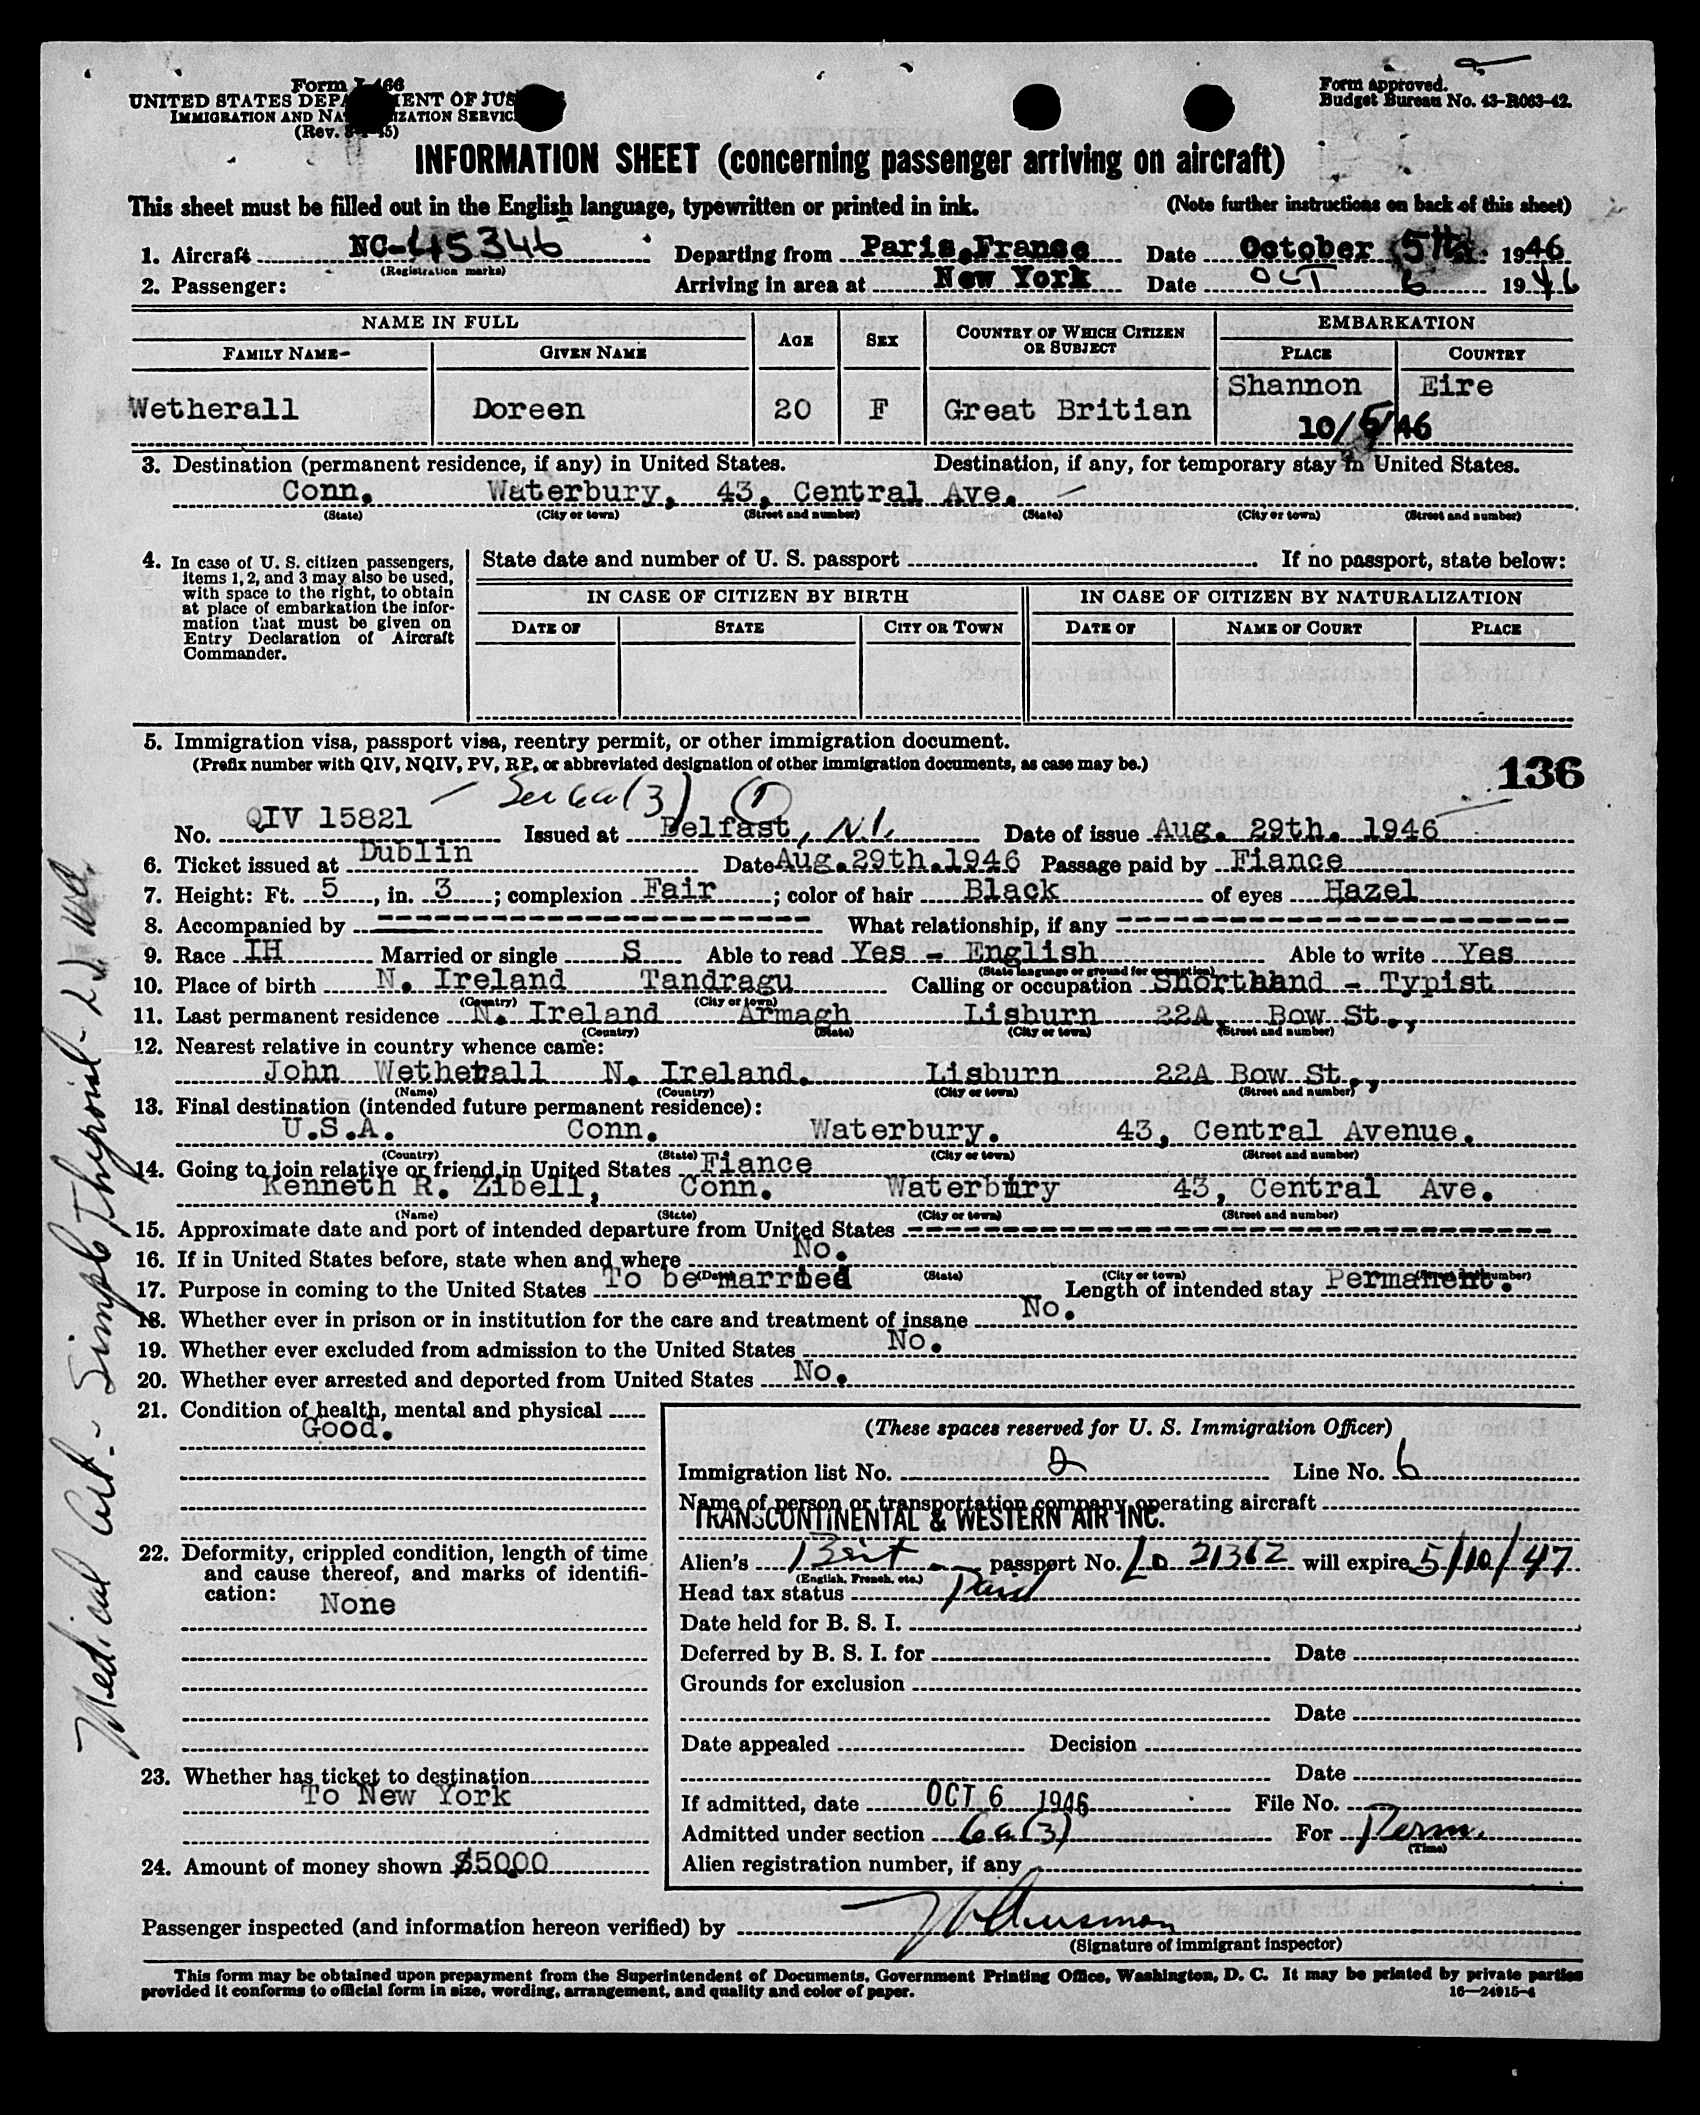 Form I-466
UNITED STATES DEPARTMENT OF JUSTICE
IMMIGRATION AND NATURALIZATION SERVICE
(Rev. 45)
Form approved.
Budget Bureau No. 43-R063-42.
INFORMATION SHEET (concerning passenger arriving on aircraft)
This sheet must be filled out in the English language, typewritten or printed in ink. (Note further instructions on back of this sheet)
1. Aircraft NC-45346 Departing from Paris,France Date October 5th 1946
(Registration marks)
2. Passenger: Arriving in area at New York Date OCT 6 1946
NAME IN FULL AGE SEX COUNTRY OF WHICH CITIZEN OR SUBJECT EMBARKATION
FAMILY NAME- GIVEN NAME PLACE COUNTRY
Wetherall Doreen 20 F Great Britian Shannon Eire
10/5/46
3. Destination (permanent residence, if any) in United States. Destination, if any, for temporary stay in United States.
Conn. Waterbury, 43, Central Ave. —
(State) (City or town) (Street and number) (State) (City or town) (Street and number)
4. In case of U. S. citizen passengers, items 1, 2, and 3 may also be used, with space to the right, to obtain at place of embarkation the information that must be given on Entry Declaration of Aircraft Commander.
State date and number of U. S. passport If no passport, state below:
IN CASE OF CITIZEN BY BIRTH IN CASE OF CITIZEN BY NATURALIZATION
DATE OF STATE CITY OR TOWN DATE OF NAME OF COURT PLACE
5. Immigration visa, passport visa, reentry permit, or other immigration document.
(Prefix number with QIV, NQIV, PV, RP, or abbreviated designation of other immigration documents, as case may be.)
136
Sec 6a(3) (1)
No. QIV 15821 Issued at Belfast, N.I. Date of issue Aug. 29th. 1946
6. Ticket issued at Dublin Date Aug.29th.1946 Passage paid by Fiance
7. Height: Ft. 5, in. 3; complexion Fair; color of hair Black of eyes Hazel
8. Accompanied by What relationship, if any
9. Race IH Married or single S Able to read Yes - English Able to write Yes
(State language or ground for exemption)
10. Place of birth N. Ireland Tandragu Calling or occupation Shorthand - Typist
(Country) (City or town)
11. Last permanent residence N. Ireland Armagh Lisburn 22A, Bow St.,
(Country) (State) (City or town) (Street and number)
12. Nearest relative in country whence came:
John Wetherall N. Ireland. Lisburn 22A Bow St.,
(Name) (Country) (City or town) (Street and number)
13. Final destination (intended future permanent residence):
U.S.A. Conn. Waterbury. 43, Central Avenue.
(Country) (State) (City or town) (Street and number)
14. Going to join relative or friend in United States Fiance
Kenneth R. Zibell, Conn. Waterbury 43, Central Ave.
(Name) (State) (City or town) (Street and number)
15. Approximate date and port of intended departure from United States
16. If in United States before, state when and where No.
(Date) (State) (City or town) (Street and number)
17. Purpose in coming to the United States To be married Length of intended stay Permanent.
18. Whether ever in prison or in institution for the care and treatment of insane No.
19. Whether ever excluded from admission to the United States No.
20. Whether ever arrested and deported from United States No.
21. Condition of health, mental and physical
Good.
22. Deformity, crippled condition, length of time and cause thereof, and marks of identification:
None
23. Whether has ticket to destination
To New York
24. Amount of money shown $50.00
(These spaces reserved for U. S. Immigration Officer)
Immigration list No. 2 Line No. 6
Name of person or transportation company operating aircraft
TRANSCONTINENTAL & WESTERN AIR INC.
Alien's Brit passport No. Lo 21362 will expire 5/10/47
(English, French, etc.)
Head tax status Paid
Date held for B. S. I.
Deferred by B. S. I. for Date
Grounds for exclusion
Date
Date appealed Decision
Date
If admitted, date OCT 6 1946 File No.
Admitted under section 6a(3) For Perm.
(Time)
Alien registration number, if any
Passenger inspected (and information hereon verified) by
(Signature of immigrant inspector)
This form may be obtained upon prepayment from the Superintendent of Documents, Government Printing Office, Washington, D. C. It may be printed by private parties
provided it conforms to official form in size, wording, arrangement, and quality and color of paper.
16—24915-4
Medical Cert. - Simple Thyroid